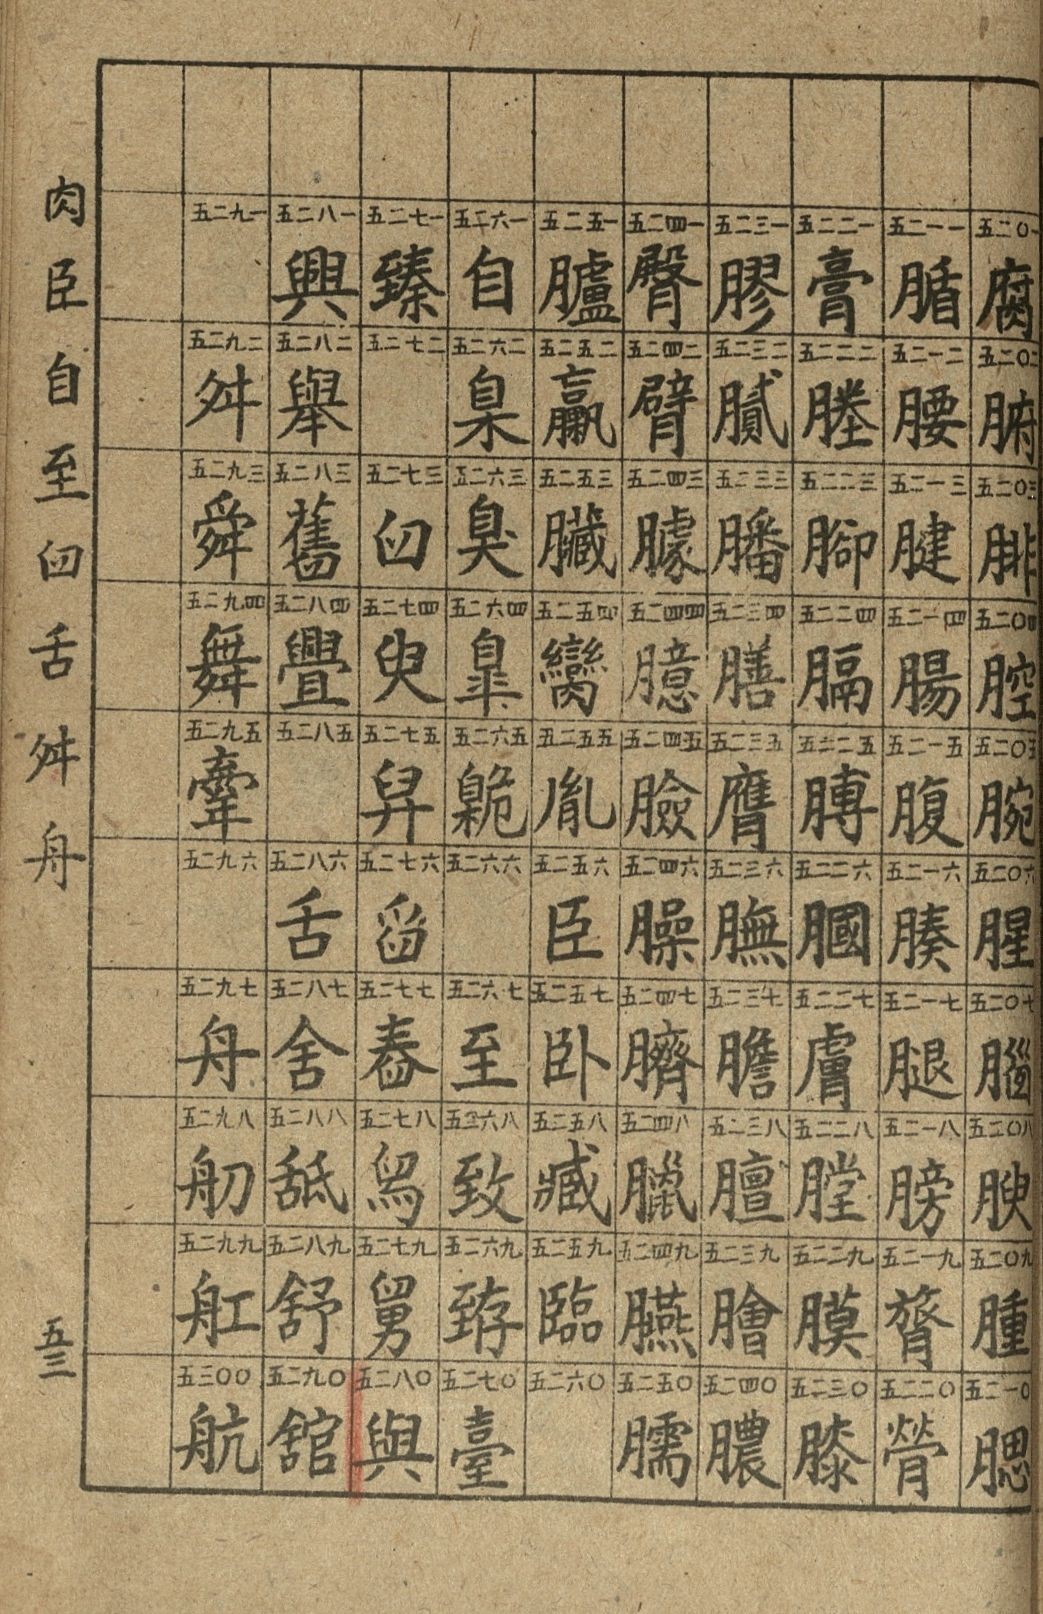 五二〇一 腐
五二〇二 腑
五二〇三 腓
五二〇四 腔
五二〇五 腕
五二〇六 腥
五二〇七 腦
五二〇八 腴
五二〇九 腫
五二一〇 腮
五二一一 腯
五二一二 腰
五二一三 腱
五二一四 腸
五二一五 腹
五二一六 腠
五二一七 腿
五二一八 膀
五二一九 膂
五二二〇 膋
五二二一 膏
五二二二 塍
五二二三 腳
五二二四 膈
五二二五 膊
五二二六 膕
五二二七 膚
五二二八 膛
五二二九 膜
五二三〇 膝
五二三一 膠
五二三二 膩
五二三三 膰
五二三四 膳
五二三五 膺
五二三六 膴
五二三七 膽
五二三八 膻
五二三九 膾
五二四〇 膿
五二四一 臀
五二四二 臂
五二四三 臄
五二四四 臆
五二四五 臉
五二四六 臊
五二四七 臍
五二四八 臘
五二四九 臙
五二五〇 臑
五二五一 臚
五二五二 臝
五二五三 臟
五二五四 臠
五二五五 胤
五二五六 臣
五二五七 卧
五二五八 臧
五二五九 臨
五二六〇
五二六一 自
五二六二 臬
五二六三 臭
五二六四 臯
五二六五 臲
五二六六
五二六七 至
五二六八 致
五二六九 臶
五二七〇 臺
五二七一 臻
五二七二
五二七三 臼
五二七四 臾
五二七五 舁
五二七六 舀
五二七七 舂
五二七八 舄
五二七九 舅
五二八〇 與
五二八一 興
五二八二 舉
五二八三 舊
五二八四 舋
五二八五
五二八六 舌
五二八七 舍
五二八八 舐
五二八九 舒
五二九〇 舘
五二九一
五二九二 舛
五二九三 舜
五二九四 舞
五二九五 舝
五二九六
五二九七 舟
五二九八 舠
五二九九 舡
五三〇〇 航
肉臣自至臼舌舛舟
五三